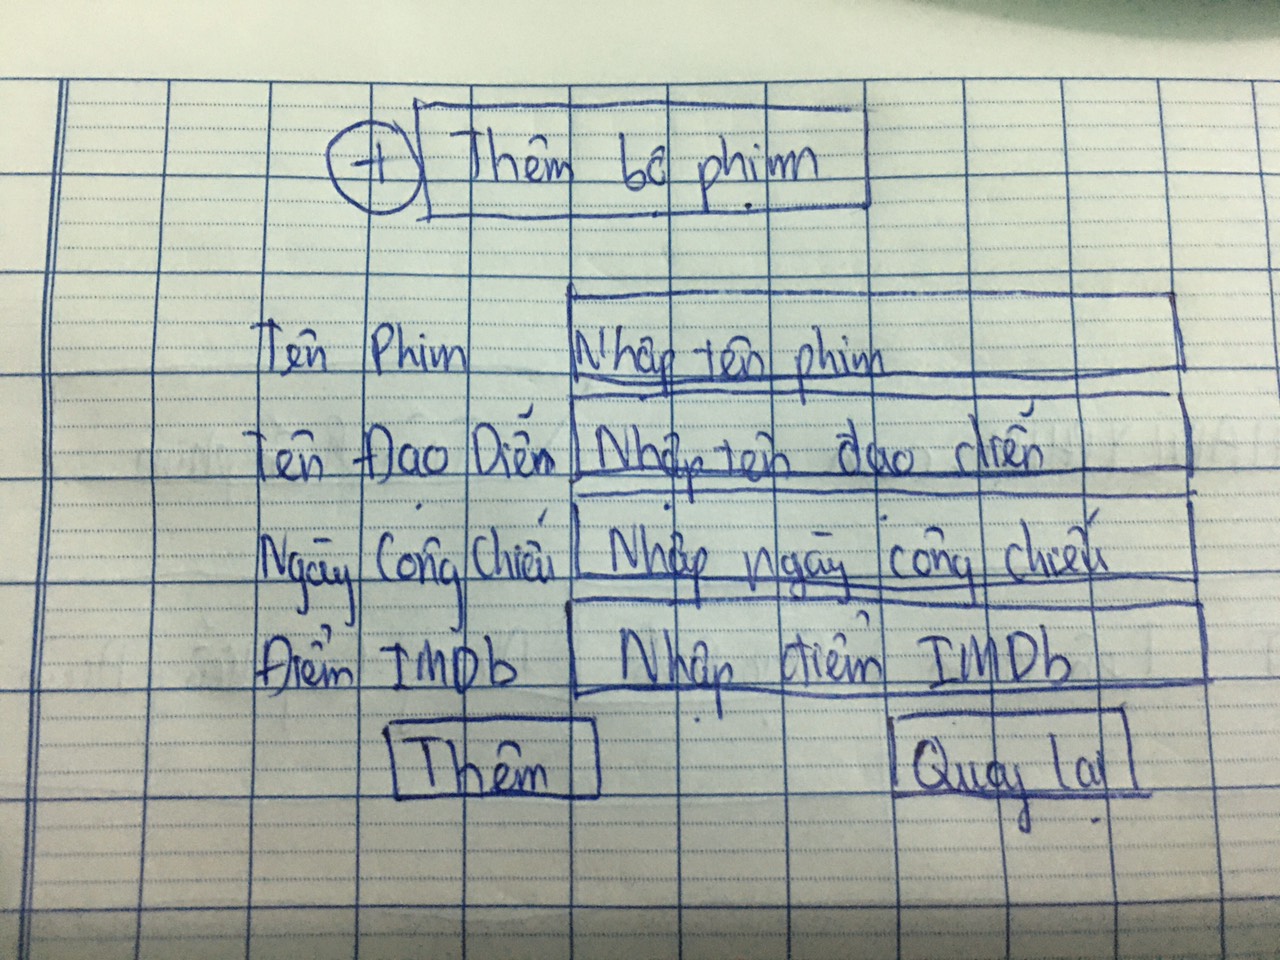 + Thêm bộ phim
Tên Phim Nhập tên phim
Tên Đạo Diễn Nhập tên đạo diễn
Ngày Công Chiếu Nhập ngày công chiếu
Điểm IMDb Nhập điểm IMDb
Thêm Quay lại